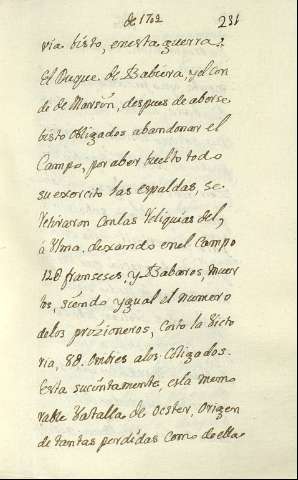 de 1702
231
ria bisto, en esta guerra.
El Duque de Babiera, y el con
de de Marsin, despues de aberse
bisto obligados abandonar el
Campo, por aber buelto todo
su exercito las espaldas, se
retiraron con las reliquias del,
á Ulma, dexando en el Campo
12 franseses, y Babaros, muer
tos, siendo ygual el numero
delos prozioneros, costo la victo
ria, 88. ombres a los coligados.
Esta sucintamente, es la memo
rable batalla de Ocster, origen
de tantas perdidas como de ella